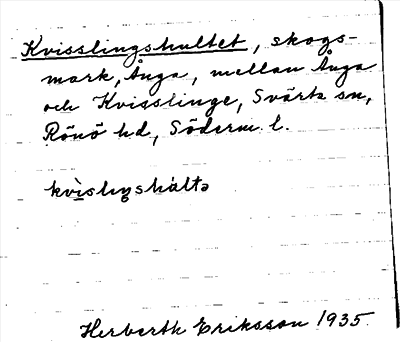 Kvisslingshultet, skogs-
mark, Ånga, mellan Ånga
och Kvisslinge, Svärta sn,
Rönö hd, Söderm. l.
kvìslıŋshúltə
Herberth Eriksson 1935.